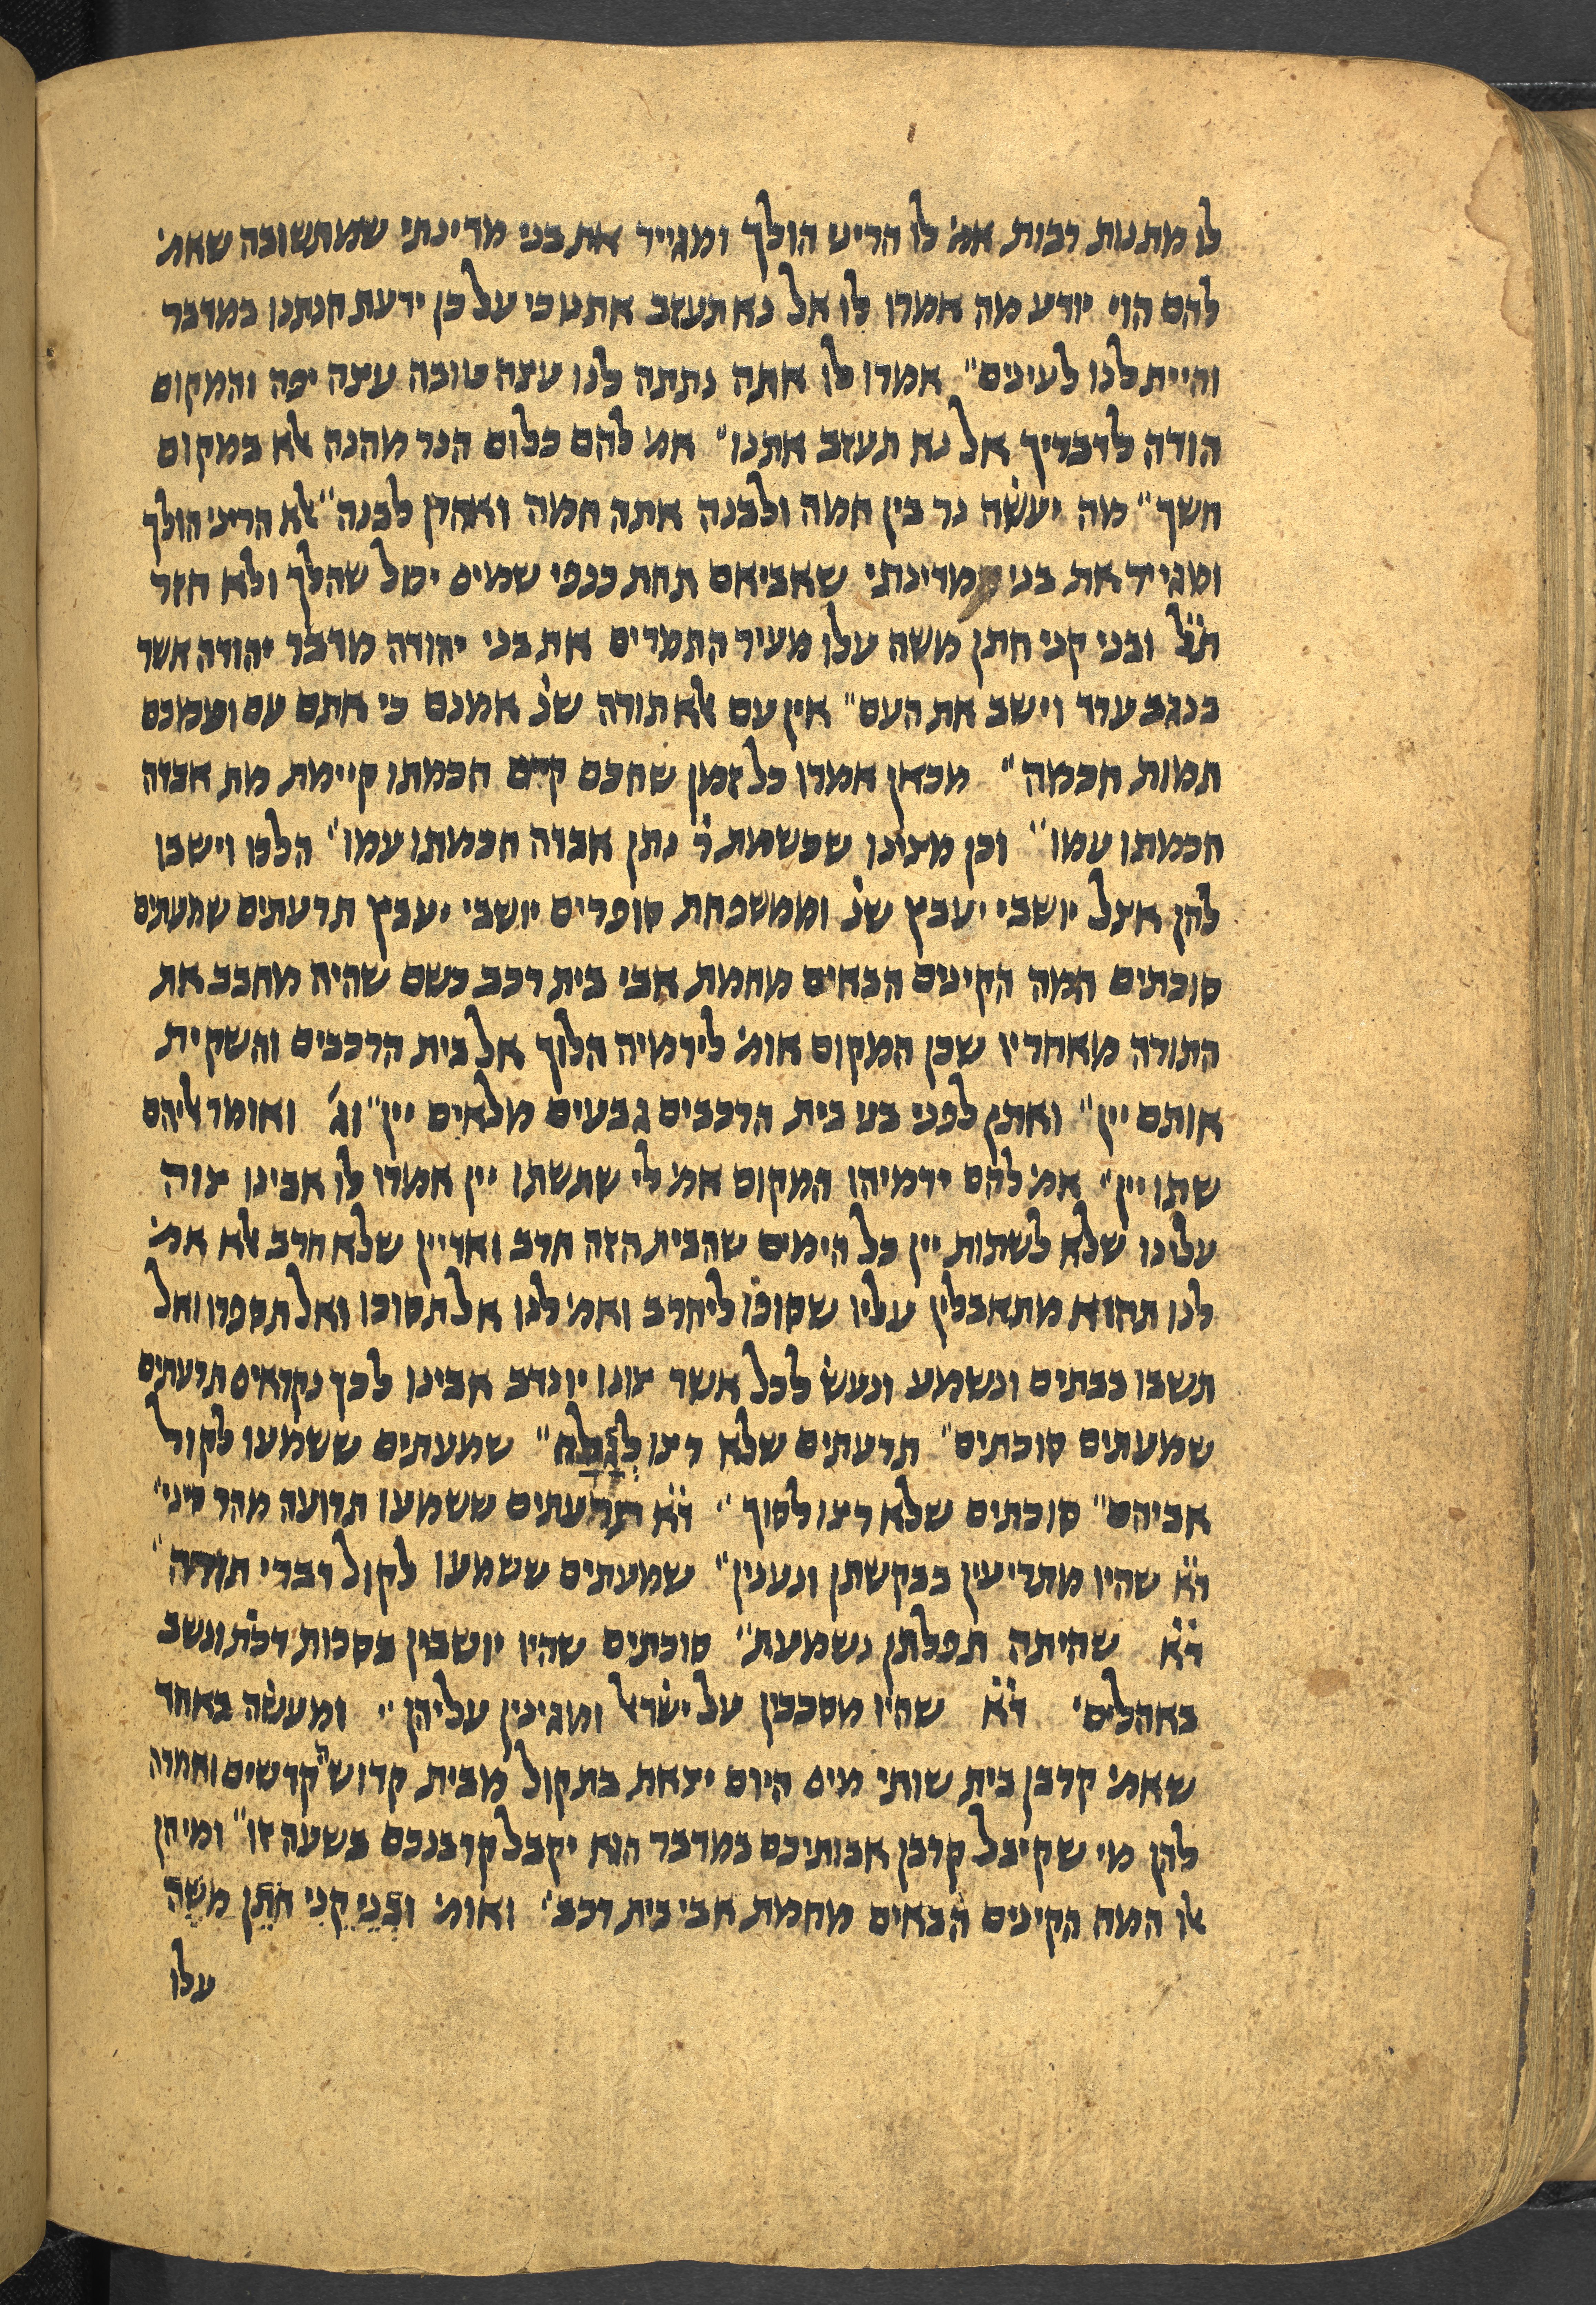 לו מתנות רבות אמ' לו הריני הולך ומגייר את בני מדינתי שמתשובה שאמ'
להם הוי יודע מה אמרו לו אל נא תעזב אתנו כי על כן ידעת חנתנו במדבר
והיית לנו לעינים" אמרו לו אתה נתתה לנו עצה טובה עצה יפה והמקום
הודה לדבריך אל נא תעזב אתנו" אמ' להם כלום הנר מהנה אלא במקום
חשך" מה יעשה נר בין חמה ולבנה אתה חמה ואהרן לבנה" אלא הריני הולך
ומגייר את בני מדינתי שאביאם תחת כנפי שמים יכול שהלך ולא חזר
ת"ל ובני קני חתן משה עלו מעיר התמרים את בני יהודה מדבר יהודה אשר
בנגב ערד וישב את העם" אין עם אלא תורה שנ' אמנם כי אתם עם ועמכם
תמות חכמה" מכאן אמרו כל זמן שחכם קיים חכמתו קיימת מת אבדה
חכמתו עמו" וכן מצינו שכשמת ר' נתן אבדה חכמתו עמו" הלכו וישבו
להן אצל יושבי יעבץ שנ' וממשפחת סופרים יושבי יעבץ תרעתים שמעתים
סוכתים המה הקינים הבאים מחמת אבי בית רכב כשם שהיה מחבב את
התורה מאחריו שכן המקום אומ' לירמיה הלוך אל בית הרכבים והשקית
אותם יין" ואתן לפני בני בית הרכבים גבעים מלאים יין" וג' ואומר אליהם
שתו יין" אמ' להם ירמיהו המקום אמ' לי שתשתו יין אמרו לו אבינו צוה
עלינו שלא לשתות יין כל הימים שהבית הזה חרב ואדיין שלא חרב אלא אמ'
לנו תהוא מתאבלין עליו שסופו ליחרב ואמ' לנו אל תסוכו ואל תספרו ואל
תשבו בבתים ונשמע ונעש לכל אשר צונו יונדב אבינו לכך נקראים תרעתים
שמעתים סוכתים" תרעתים שלא רצו לגלח" שמעתים ששמעו לקול
אביהם" סוכתים שלא רצו לסוך" ד"א תרעתים ששמעו תרועה מהר סיני"
ד"א שהיו מתריעין בבקשתן ונענין" שמעתים ששמעו לקול דברי תורה"
ד"א שהיתה תפלתן נשמעת" סוכתים שהיו יושבין בסכות דכת' ונשב
באהלים' ד"א שהיו מסככין על ישראל ומגינין עליהן" ומעשה באחד
שאמ' קרבן בית שותי מים היום יצאת בת קול מבית קדוש הקדשים ואמרה
להן מי שקיבל קרבן אבותיכם במדבר הוא יקבל קרבנכם בשעה זו" ומיהן
אלו המה הקינים הבאים מחמת אבי בית רכב' ואומ' ובני קני חתן משה
עלו